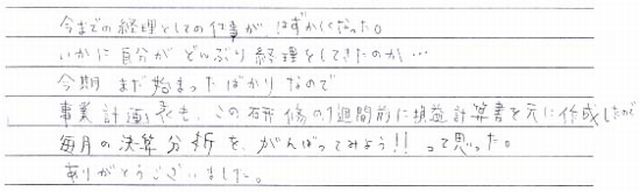 今までの経理としての仕事が はずかしくなった。
いかに自分が どんぶり経理をしてきたのか…
今期 まだ始まったばかりなので
事業計画表も、この研修の1週間前に損益計算書を元に作成したので
毎月の決算分析を、がんばってみよう!! って思った。
ありがとうございました。